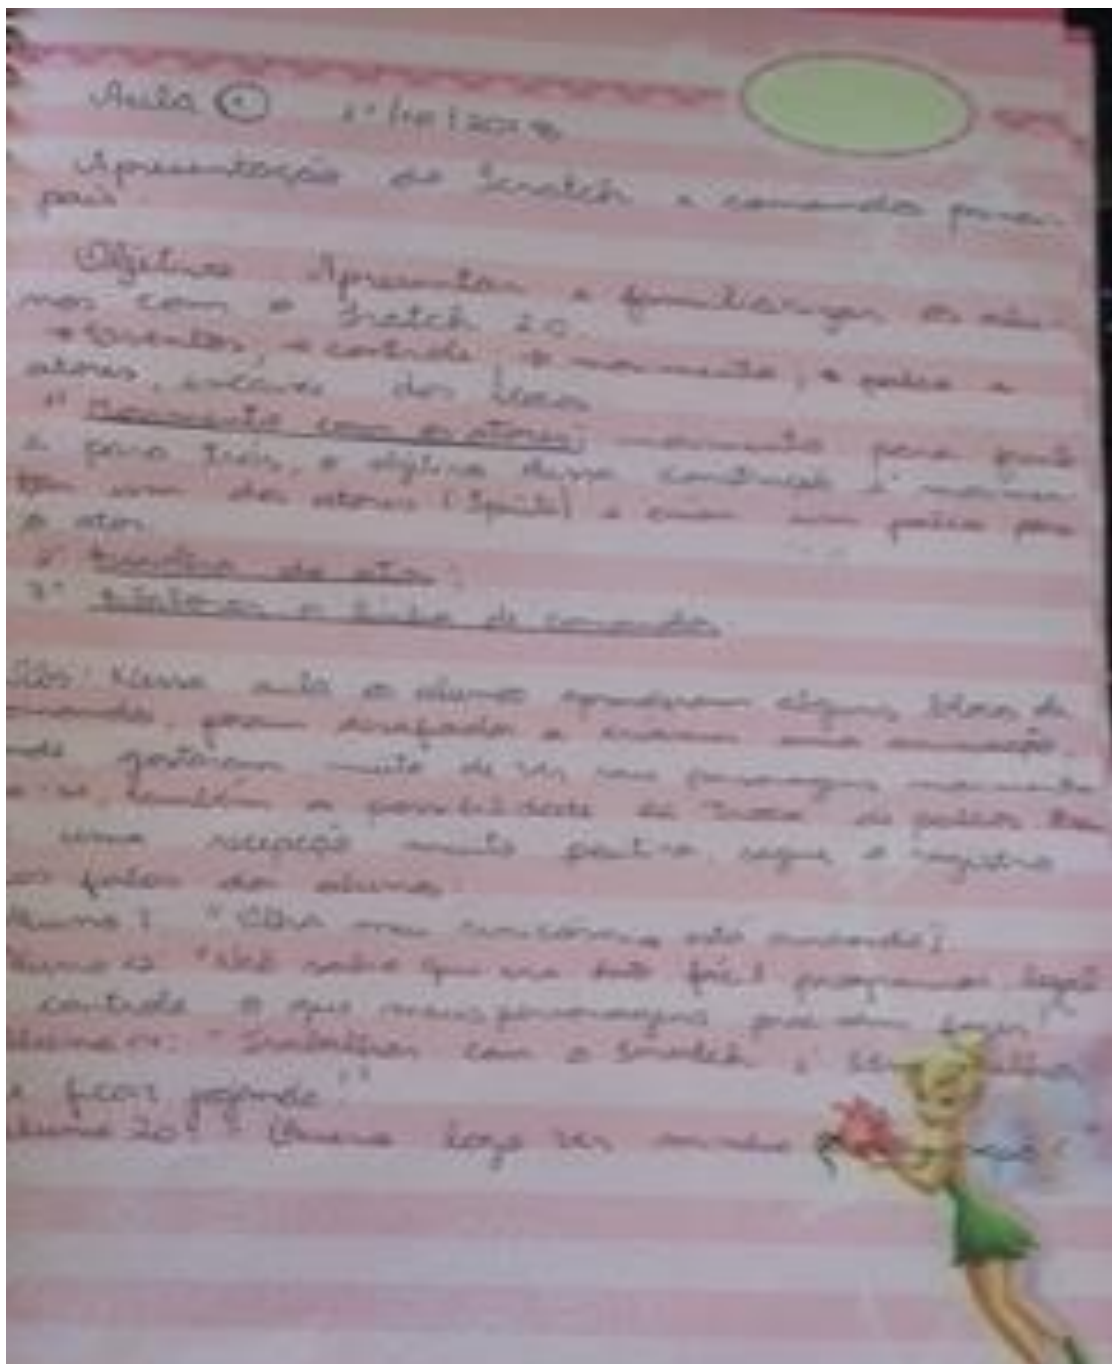 Aula 1 1º/10/2018
Apresentação do Scratch e comandos princi-
pais.
Objetivo Apresentar e familiarizar os alu-
nos com o Scratch 2.0.
* Eventos, * controle, * movimento, * palco e
atores, encaixe dos blocos
1º Movimento com os atores; movimento para frente
e para trás, o objetivo dessa construção é movimen-
tar um dos atores (Sprite) e criar um palco para
o ator
2º do ator;
3º a linha de comandos
Obs: Nessa aula os alunos aprenderam alguns blocos de
comandos, foram desafiados a criarem uma animação,
onde gostaram muito de ver seus personagens movimenta
também a possibilidade da "troca" de palcos
uma recepção muito positiva, segue o registro
das falas dos alunos
Aluno 1 "Olha meu unicórnio está andando!
Aluno 12 "Não sabia que era tão fácil programar, legal
controlo o que meus personagens podem fazer"
Aluno "Trabalhar com o Scratch é
ficar jogando"
Aluno 20: "Quero logo ver minha